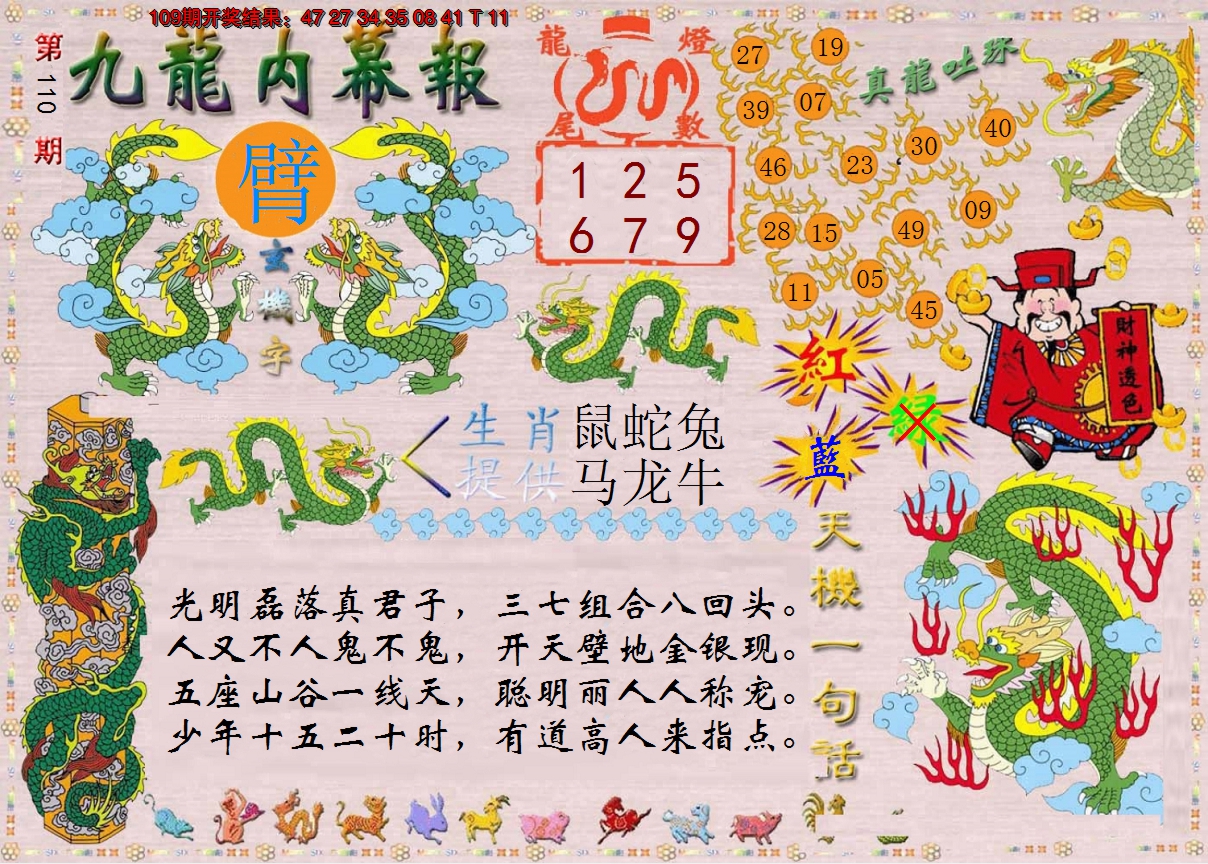 109期开奖结果：47 27 34 35 08 41 T 11
第110期
九龍内幕報
臂
玄機字
龍燈
尾數
1 2 5
6 7 9
真龍吐珠
27 19
39 07
46 23 30 40
28 15 49 09
11 05 45
紅
绿
藍
財神透色
生肖 鼠蛇兔
提供 马龙牛
天機一句話
光明磊落真君子，三七组合八回头。
人又不人鬼不鬼，开天壁地金银现。
五座山谷一线天，聪明丽人人称宠。
少年十五二十时，有道高人来指点。